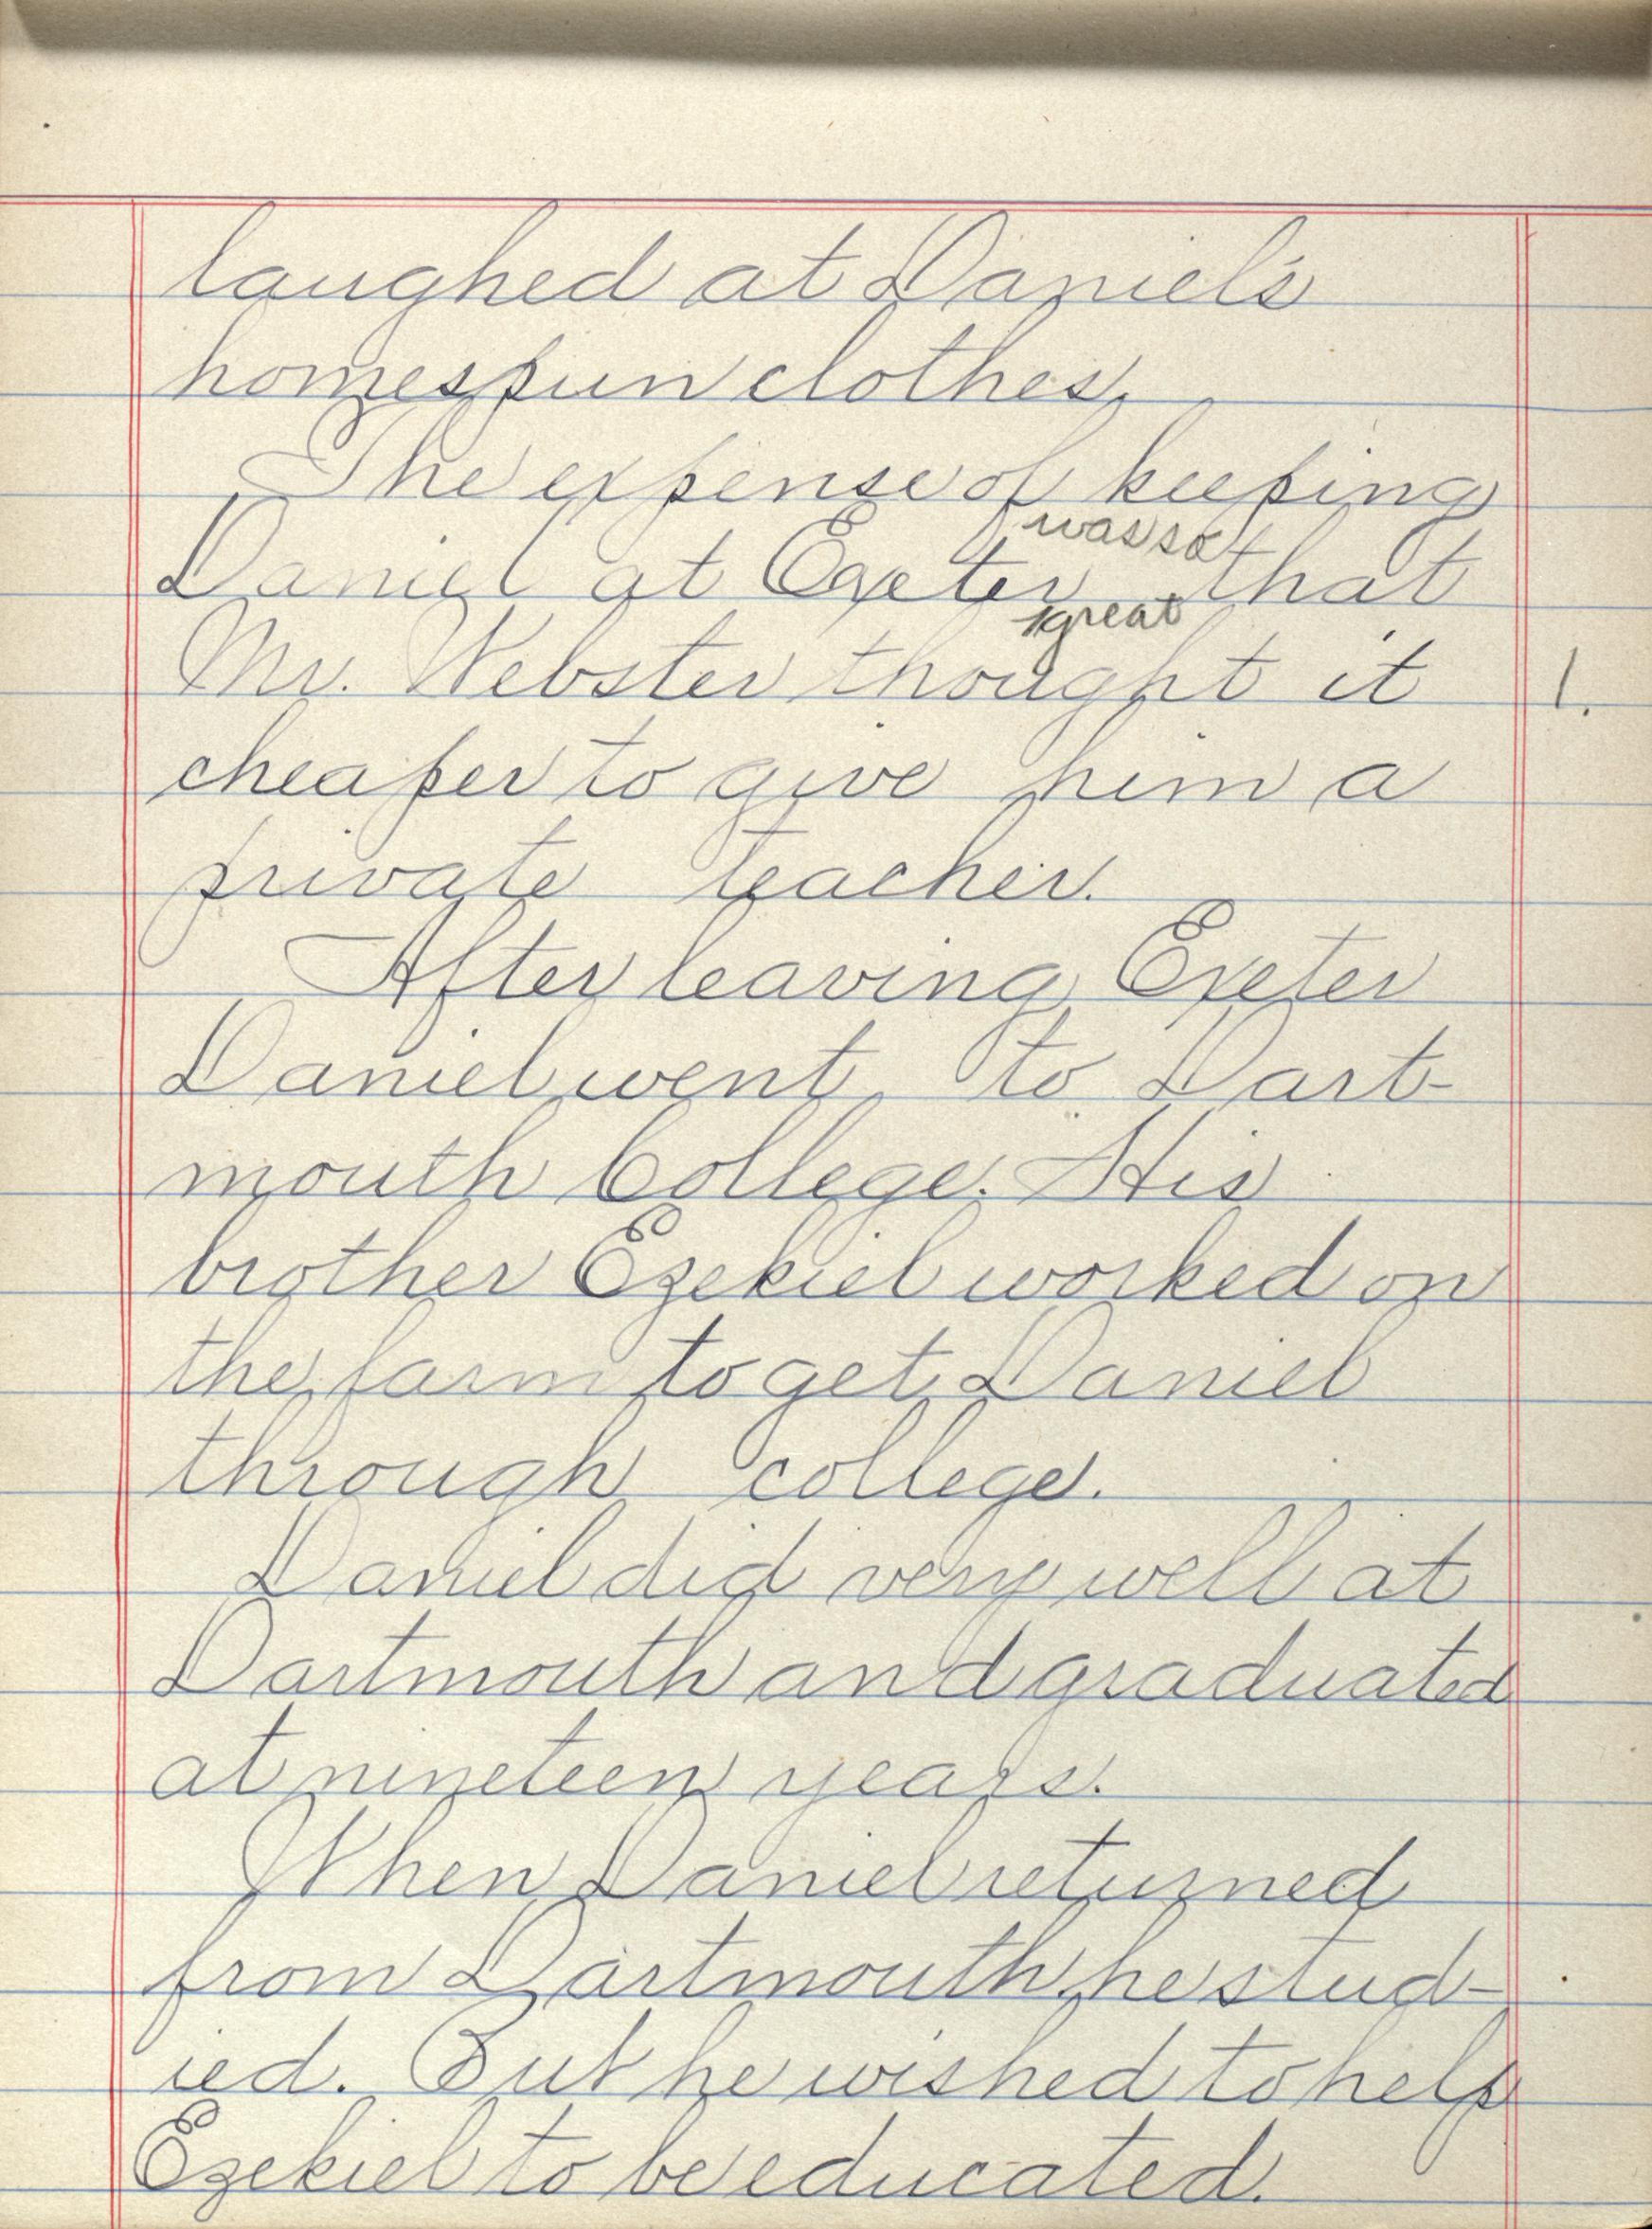 laughed at Daniel's
homespun clothes.
The expense of keeping
was so
Daniel at Exeter that
great
Mr. Webster thought it
1.
cheaper to give him a
private teacher.
After leaving Exeter
Daniel went to Dart-
mouth College. His
brother Ezekiel worked on
the farm to get Daniel
through college.
Daniel did very well at
Dartmouth and graduated
at nineteen years.
When Daniel returned
from Dartmouth, he stud-
ied. But he wished to help
Ezekiel to be educated.